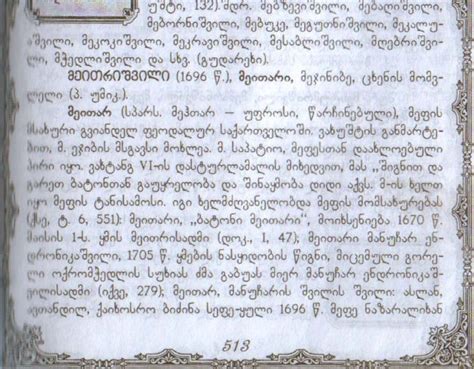 უშტი, 132).მდრ. მებზევიშვილი, მებაღიშვილი,
მებორნიშვილი, მებუკე, მეგუთნიშვილი, მეკალუ-
აშვილი, მეკოკიშვილი, მეკრავიშვილი, მესაბლიშვილი, მდებრიშვი-
ლი, მჭედლიშვილი და სხვ. (გუდარეხი).
მეითრიშვილი (1696 წ.), მეითარი, მეჯინიბე, ცხენის მომვ-
ლელი (პ. უმიკ.).
მეითარ (სპარს. მეჰთარ – უფროსი, წარჩინებული), მეფის
მსახური გვიანდელ ფეოდალურ საქართველოში. ვახუშტის განმარტე-
ბით, მ. ეჯიბის მსგავსი მოხლეა. მ. საპატიო, მეფესთან დაახლოებული
პირი იყო. ვახტანგ VI-ის დასტურლამალის მიხედვით, მას „შიგნით და
გარეთ ბატონთან გაუყრელობა და შინაყმობა დიდი აქვს. მ-ის ხელთ
იყო მეფის ტანისამოსი. იგი ხელმძღვანელობდა მეფის მომსახურებას
(ქსე, ტ. 6, 551): მეითარი, „ბატონი მეითარი“, მოიხსენიება 1670 წ.
მაისის 1-ს. ყმის მეითრისადმი (დოკ., I, 47); მეითარი მანუჩარ ენ-
დრონიკაშვილი, 1705 წ. ყმების ნასყიდობის წიგნი, მიცემული გორე-
ლი ოქრომჭედლის სუხიას ძმა გაბუას მიერ მანუჩარ ენდრონიკაშ-
ვილისადმი (იქვე, 279); მეითარ, მანუჩარის შვილი: ასლან,
ავთანდილ, ქაიხოსრო ბიძინა სეფე-ყული 1696 წ. მეფე ნაზარალიხან
513